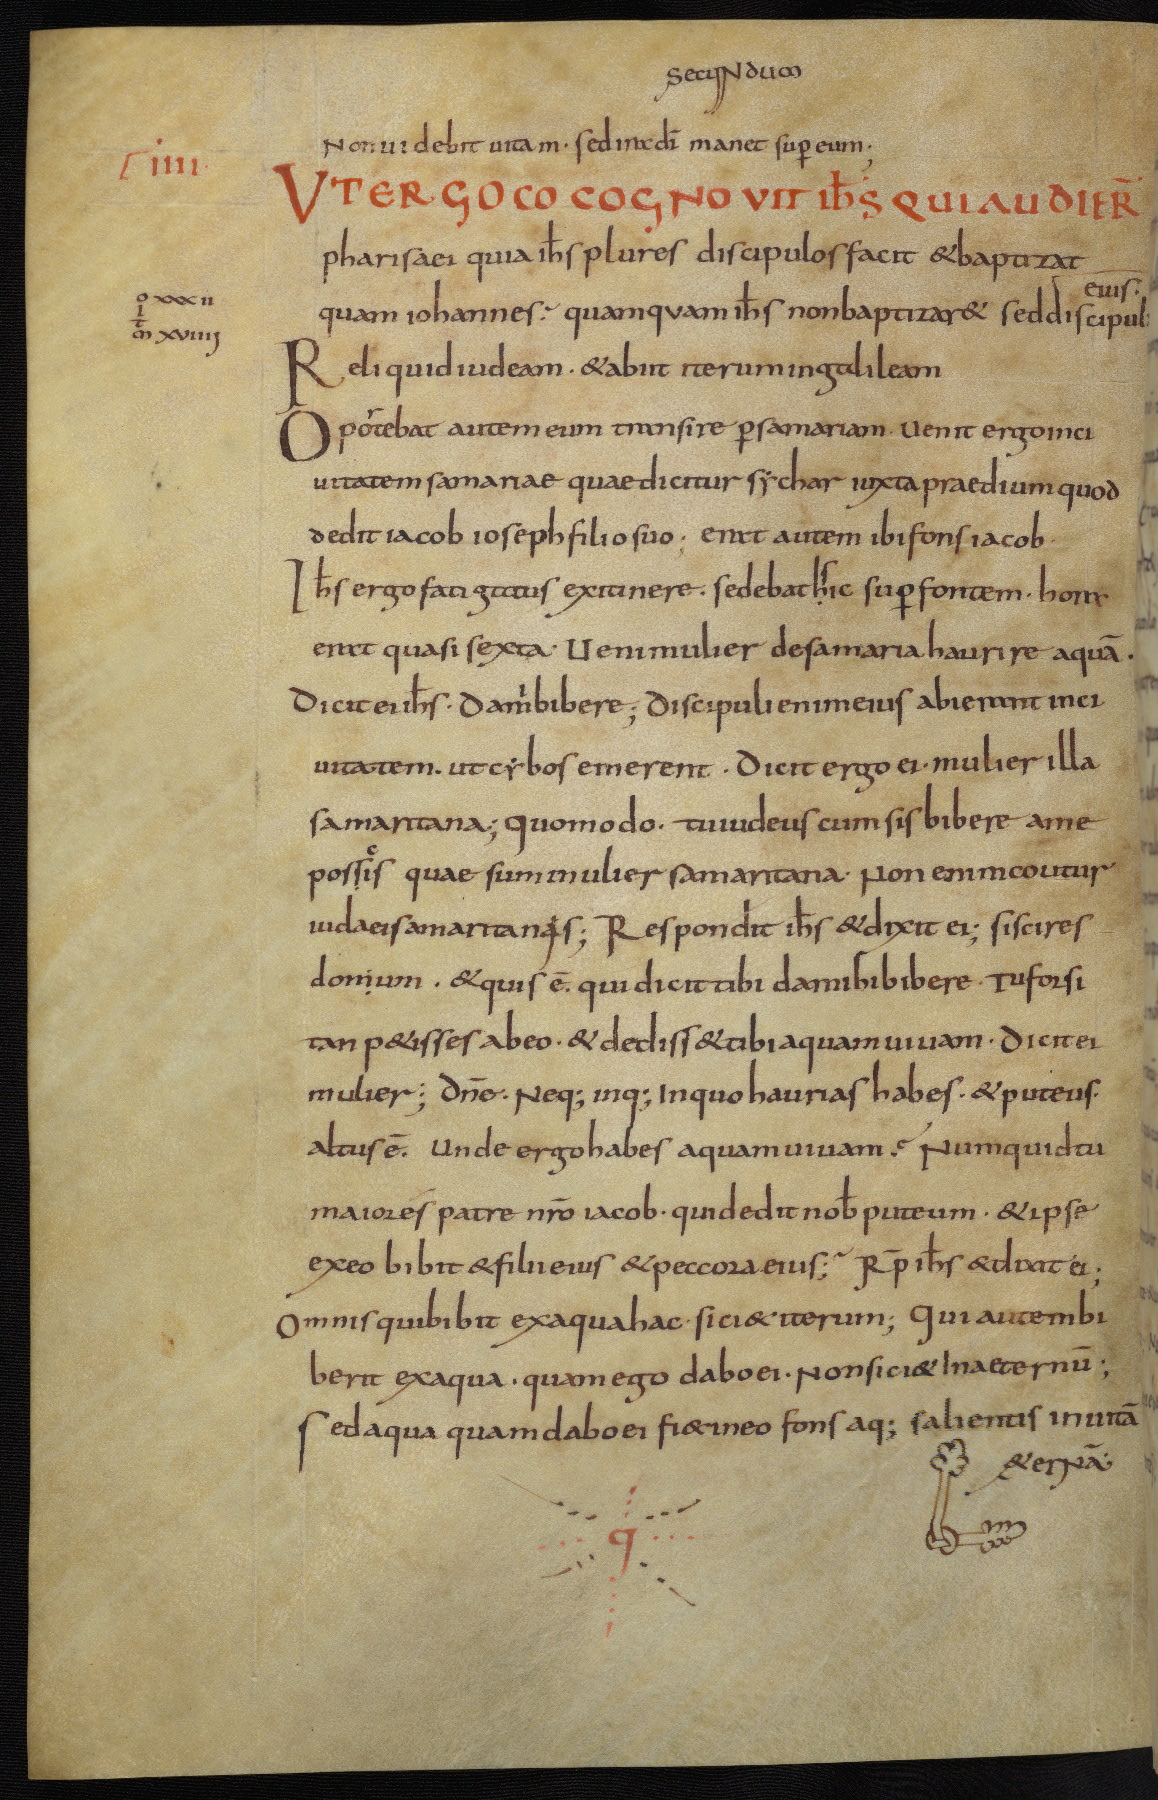 secundum
Non uidebit uitam· sed ira dī manet sup̄ eum;
iiii·
VT ERGO COCOGNOVIT ih̄s QUI AUDIER̄
pharisaei quia ih̄s plures discipulos facit & baptizat
eius·
quam iohannes· quamquam ih̄s non baptizar& sed discipul
xxxii
xviiii
Reliquid iudeam· & abiit iterum in galileam
Oportebat autem eum transire p̄ samariam· Uenit ergo in ci
uitatem samariae quae dicitur sẏchar iuxta praedium quod
dedit iacob ioseph filio suo; erat autem ibi fons iacob·
Ih̄s ergo fatigatus ex itinere· sedebat sic sup̄ fontem· hora
erat quasi sexta· Uenit mulier de samaria haurire aquā·
Dicit ei ih̄s· Da m̄ bibere; Discipuli enim eius abierant in ci
uitatem· ut cẏbos emerent· Dicit ergo ei· mulier illa
samaritana; Quomodo· tu iudeus cum sis bibere a me
poscis quae sum mulier samaritana· Non enim coutur
iudaei samaritanis; Respondit ih̄s & dixit ei; si scires
donum· & quis ē· qui dicit tibi da mihi bibere· Tu forsi
tan p&isses ab eo· & dediss& tibi aquam uiuam· Dicit ei
mulier; Dn̄e· Neq; inq; In quo haurias habes· & puteus·
altus ē· Unde ergo habes aquam uiuam· Numquid tu
maiores patre nr̄o iacob· qui dedit nob̄ puteum· & ipse
ex eo bibit & filii eius & peccora eius; Rp̄ ih̄s & dixit ei;
Omnis qui bibit ex aqua hac· sici& iterum; Qui autem bi
berit ex aqua· quam ego dabo ei· Non sici& In aeternū;
Sed aqua quam dabo ei fi& in eo fons aq; salientis in uitā
&ernā·
q